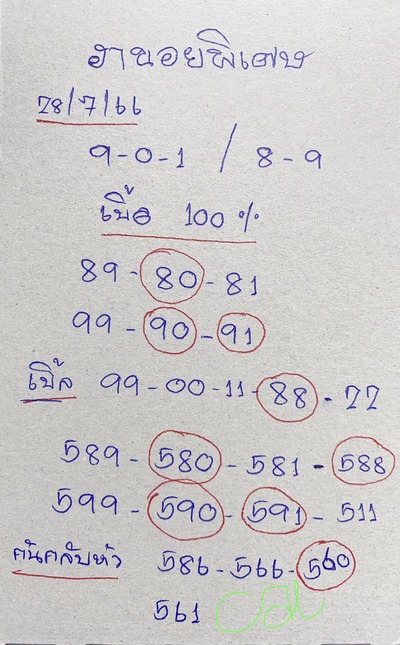 ฮานอยพิเศษ
28/7/66
9-0-1 / 8-9
เบิ้ล 100%
89-80-81
99-90-91
เบิ้ล 99-00-11-88-22
589-580-581-588
599-590-591-511
586-566-560
561